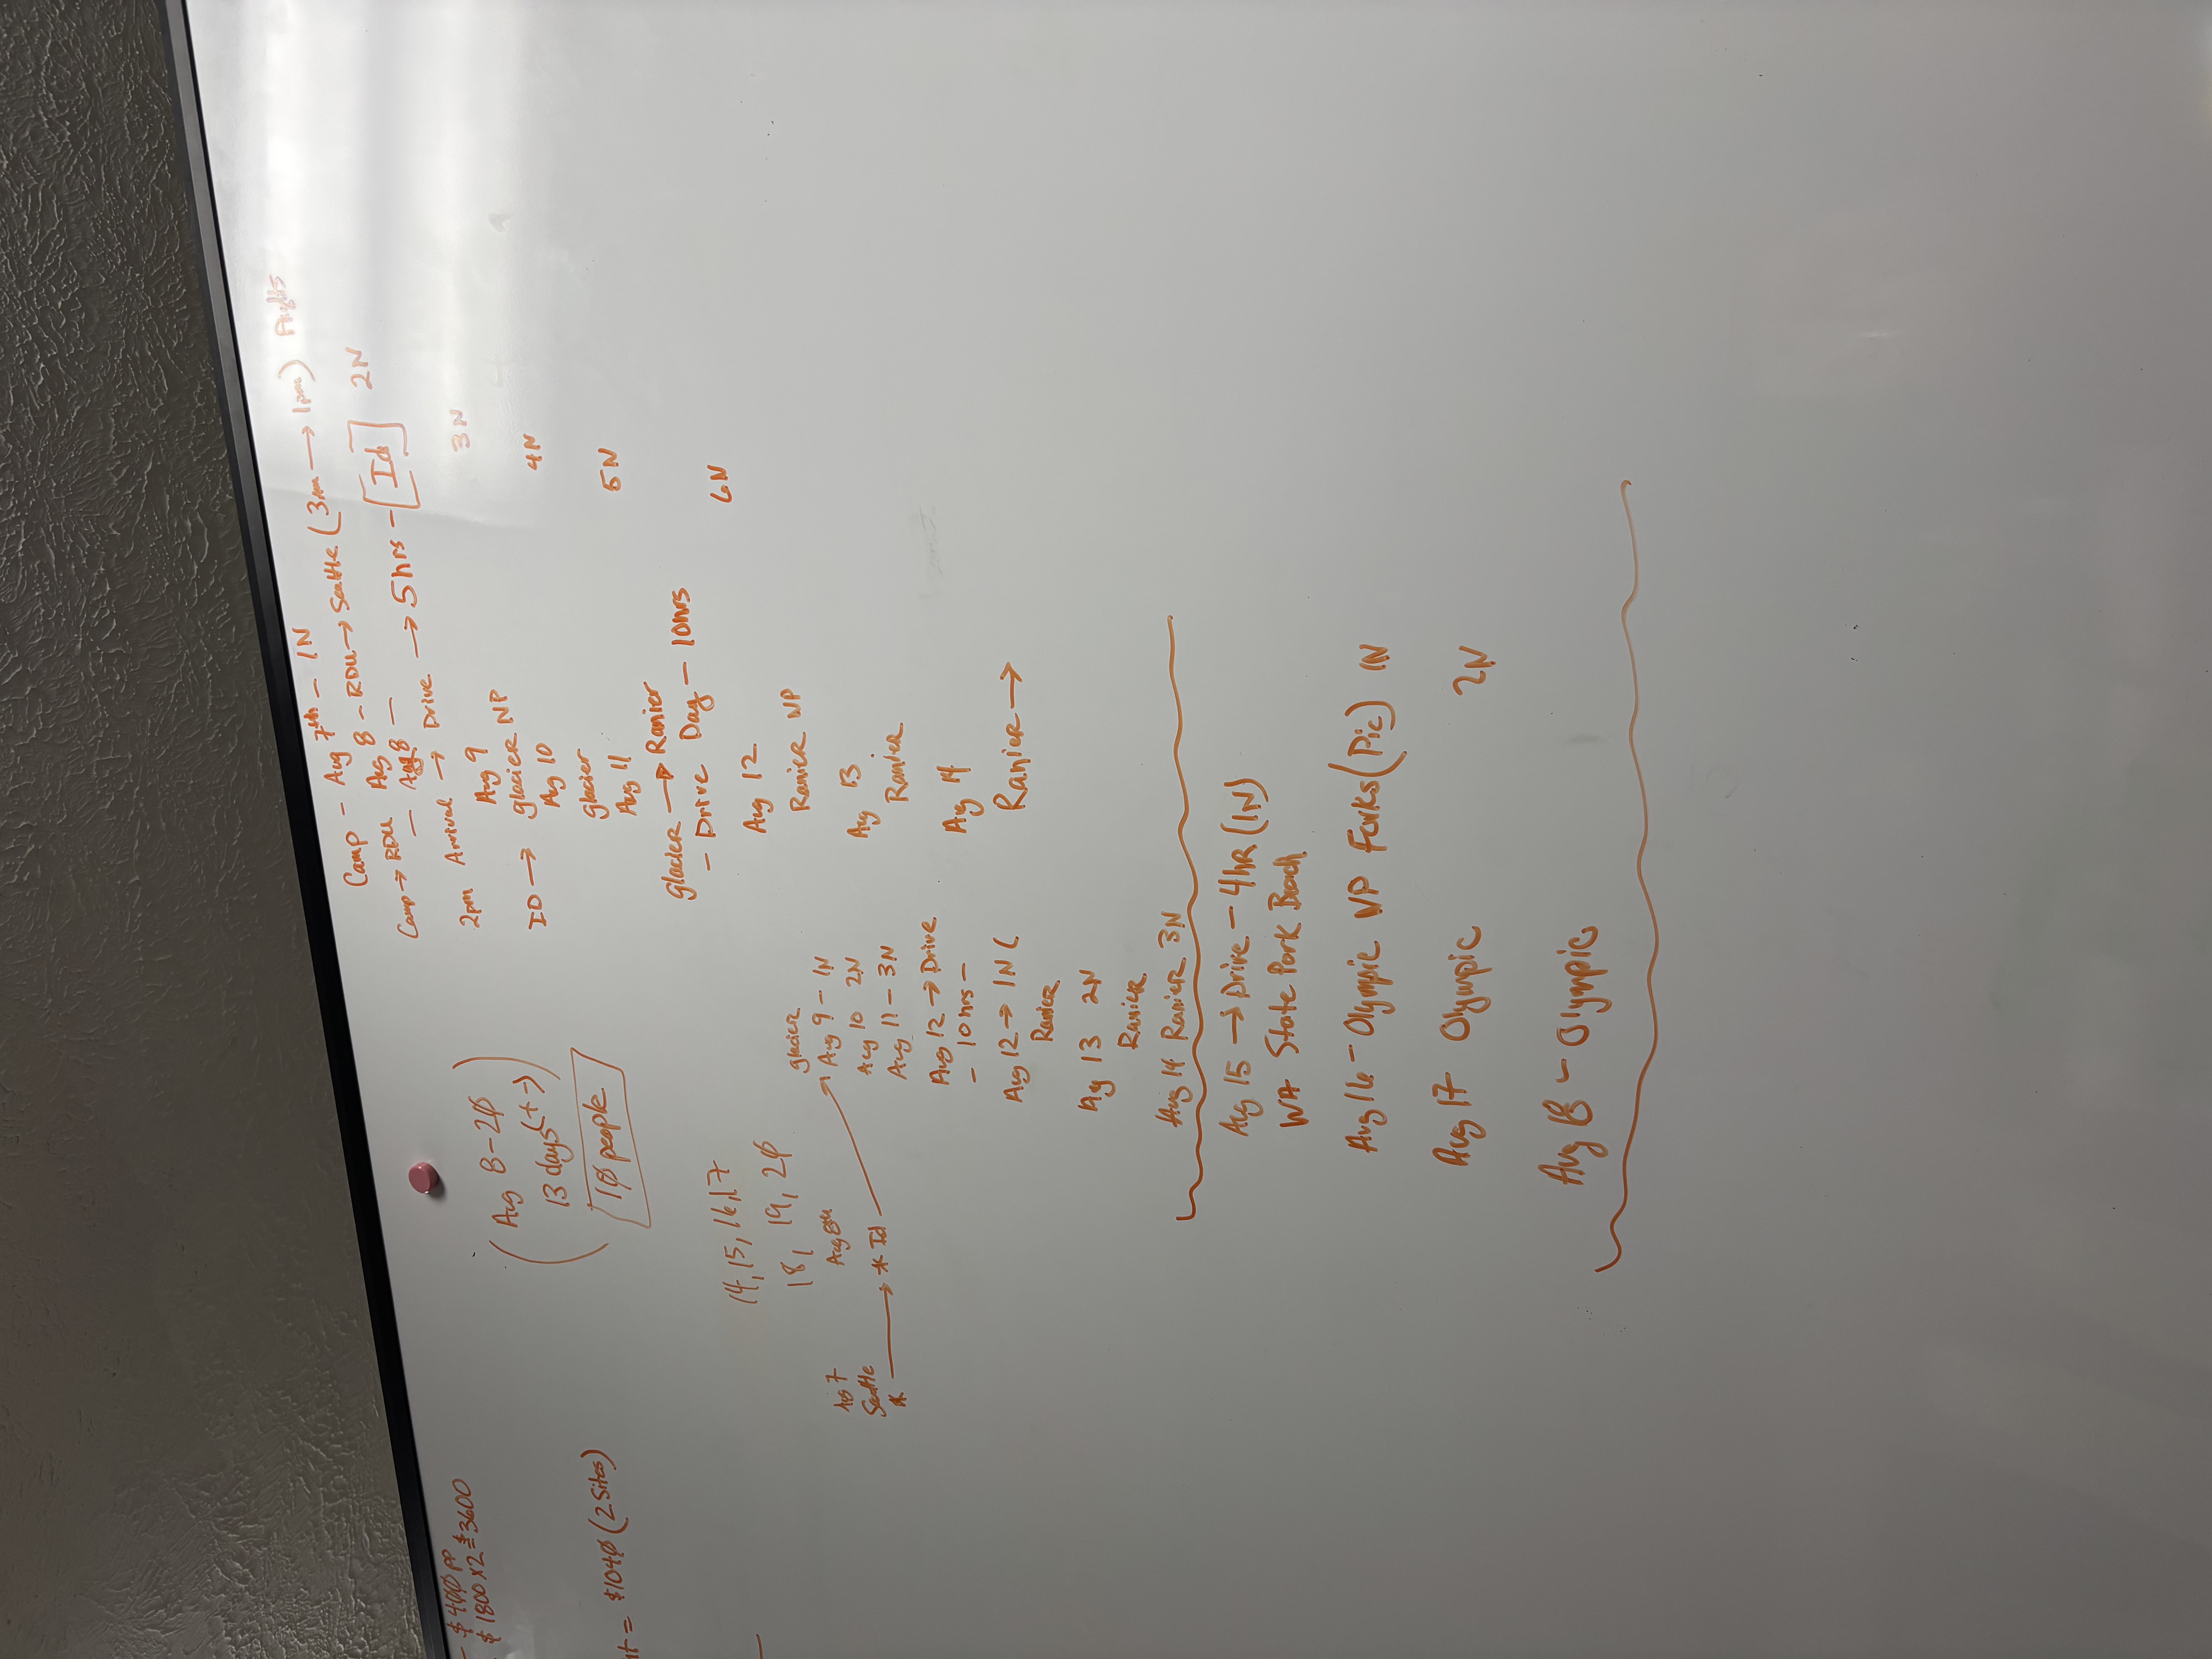 - $400 pp
$1800 x 2 = $3600
nt = $1040 (2 Sites)
(Aug 8 - 20)
13 days (+ -)
10 people
14, 15, 16, 17
18, 19, 20
Aug 7
Seattle
* → * Id
Aug 8th
glacier
Aug 9 - 1N
Aug 10 2N
Aug 11 - 3N
Aug 12 → Drive
- 10hrs -
Aug 12 → 1N (
Ranier
Ag 13 2N
Ranier
Aug 14 Ranier 3N
Aug 15 → Drive - 4hr (1N)
WA State Park Beach
Aug 16 - Olympic NP Forks (Pic) 1N
Aug 17 Olympic 2N
Aug 18 - Olympic
Camp - Aug 7th - 1N
Camp → RDU Aug 8 - RDU → Seattle (3hr → 1pm) Flights
- Aug 8 -
2pm Arrival → Drive → 5hrs - [Id] 2N
Aug 9 3N
ID → glacier NP
Aug 10 4N
glacier
Aug 11 5N
glacier → Ranier
- Drive Day - 10hrs 6N
Aug 12
Ranier NP
Aug 13
Ranier
Aug 14
Ranier →